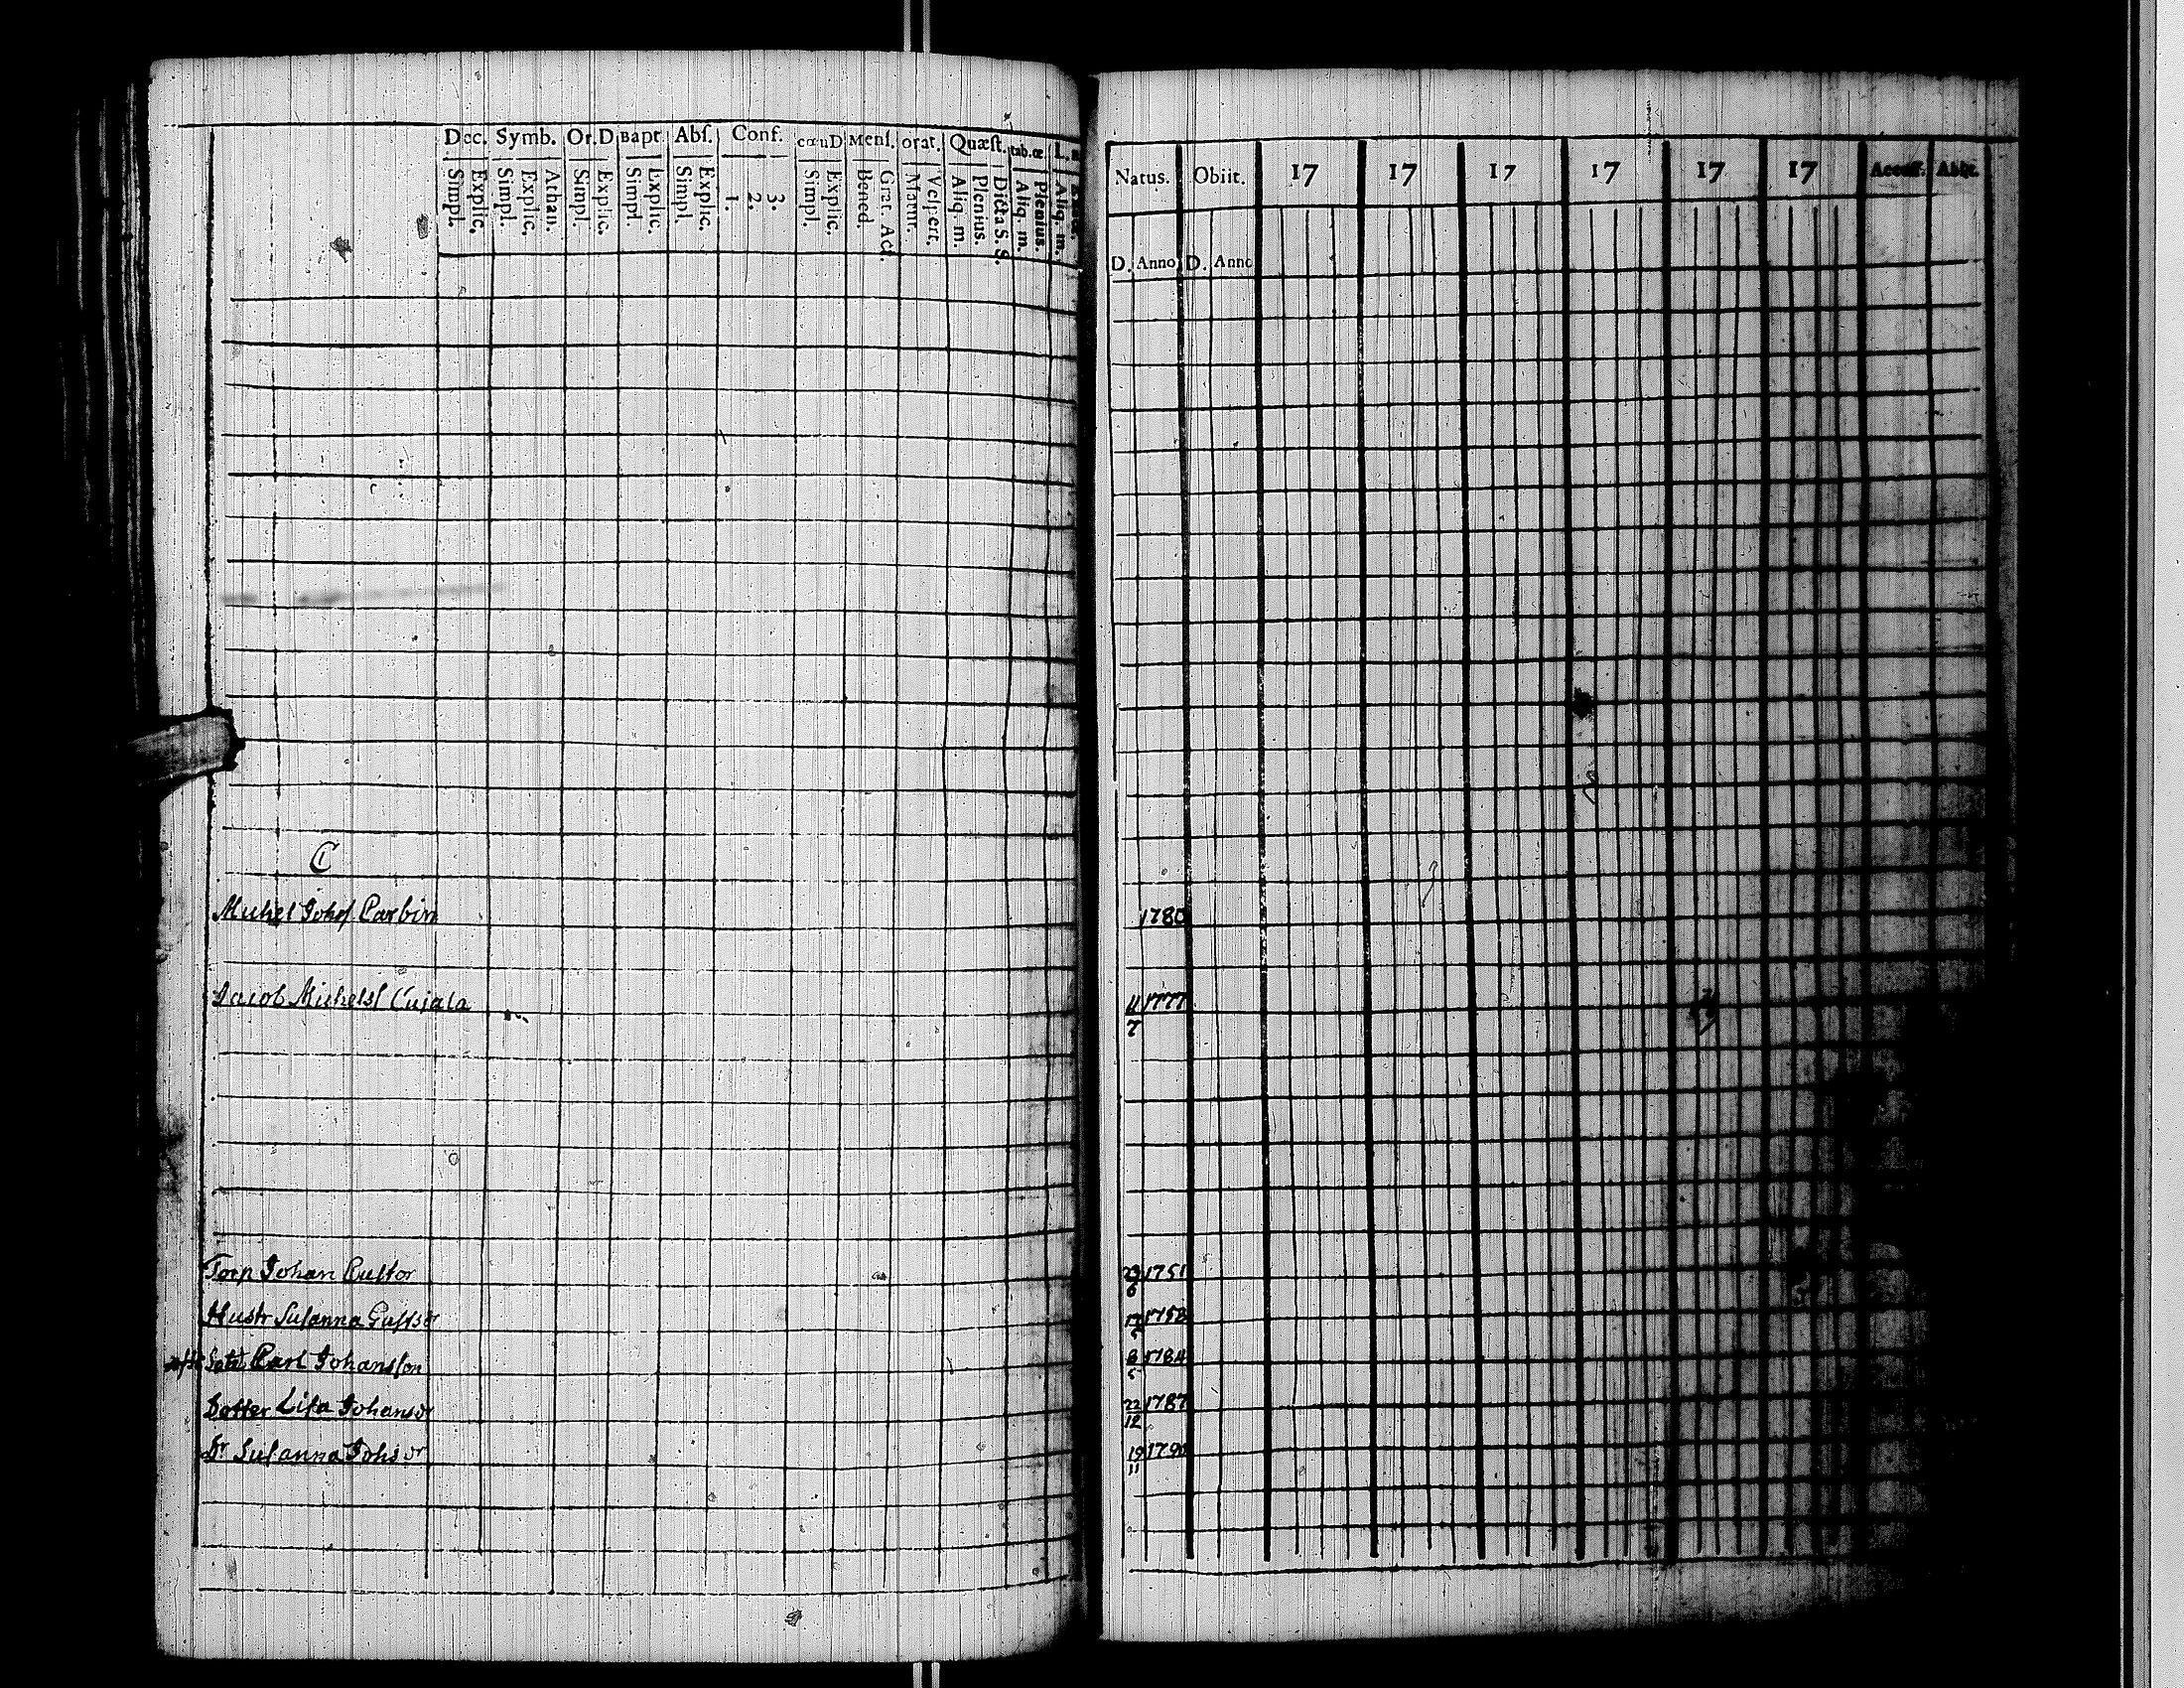 Dec. Symb. Or.D Bapt. Abſ. Conf. cœnD Menſ. orat. Quæſt. tab.œ L.
Simpl. Explic. Simpl. Explic. Athan. Simpl. Explic. Simpl. Explic. Simpl. Explic. 1. 2. 3. Simpl. Explic. Bened. Grat. Act. Matut. Veſpert. Aliq. m. Plenius. Dicta S. S. Aliq. m. Plenius. Aliq. m.
Natus. Obiit. 17 17 17 17 17 17 Acceſſ. Abiit.
D. Anno D. Anno
C
Michel Johſ Carbin 1780
Jacob Michelsſ Cujala 11/7 1777
Torp Johan Custor 1751
Hustr Susanna Gustsdr 1758
Carl Johansſon 1784
Dotter Lisa Johansdr 22/12 1787
Dr Susanna Johsdr 19/11 1790